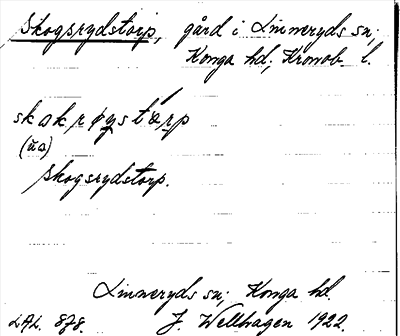 Skogsrydstorp, gård i Linneryds sn;
Konga hd, Kronob. l.
skokrøystårp
(ua)
Skogsrydstorp.
Linneryds sn; Konga hd.
LAL. 878. J. Wellhagen 1922.